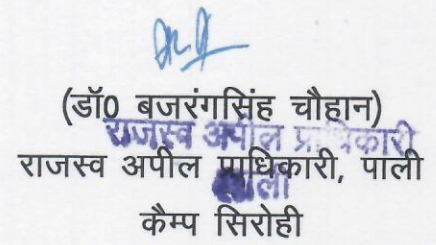 (डॉ0 बजरंगसिंह चौहान)
राजस्व अपील प्राधिकारी
राजस्व अपील प्राधिकारी, पाली
पाली
कैम्प सिरोही